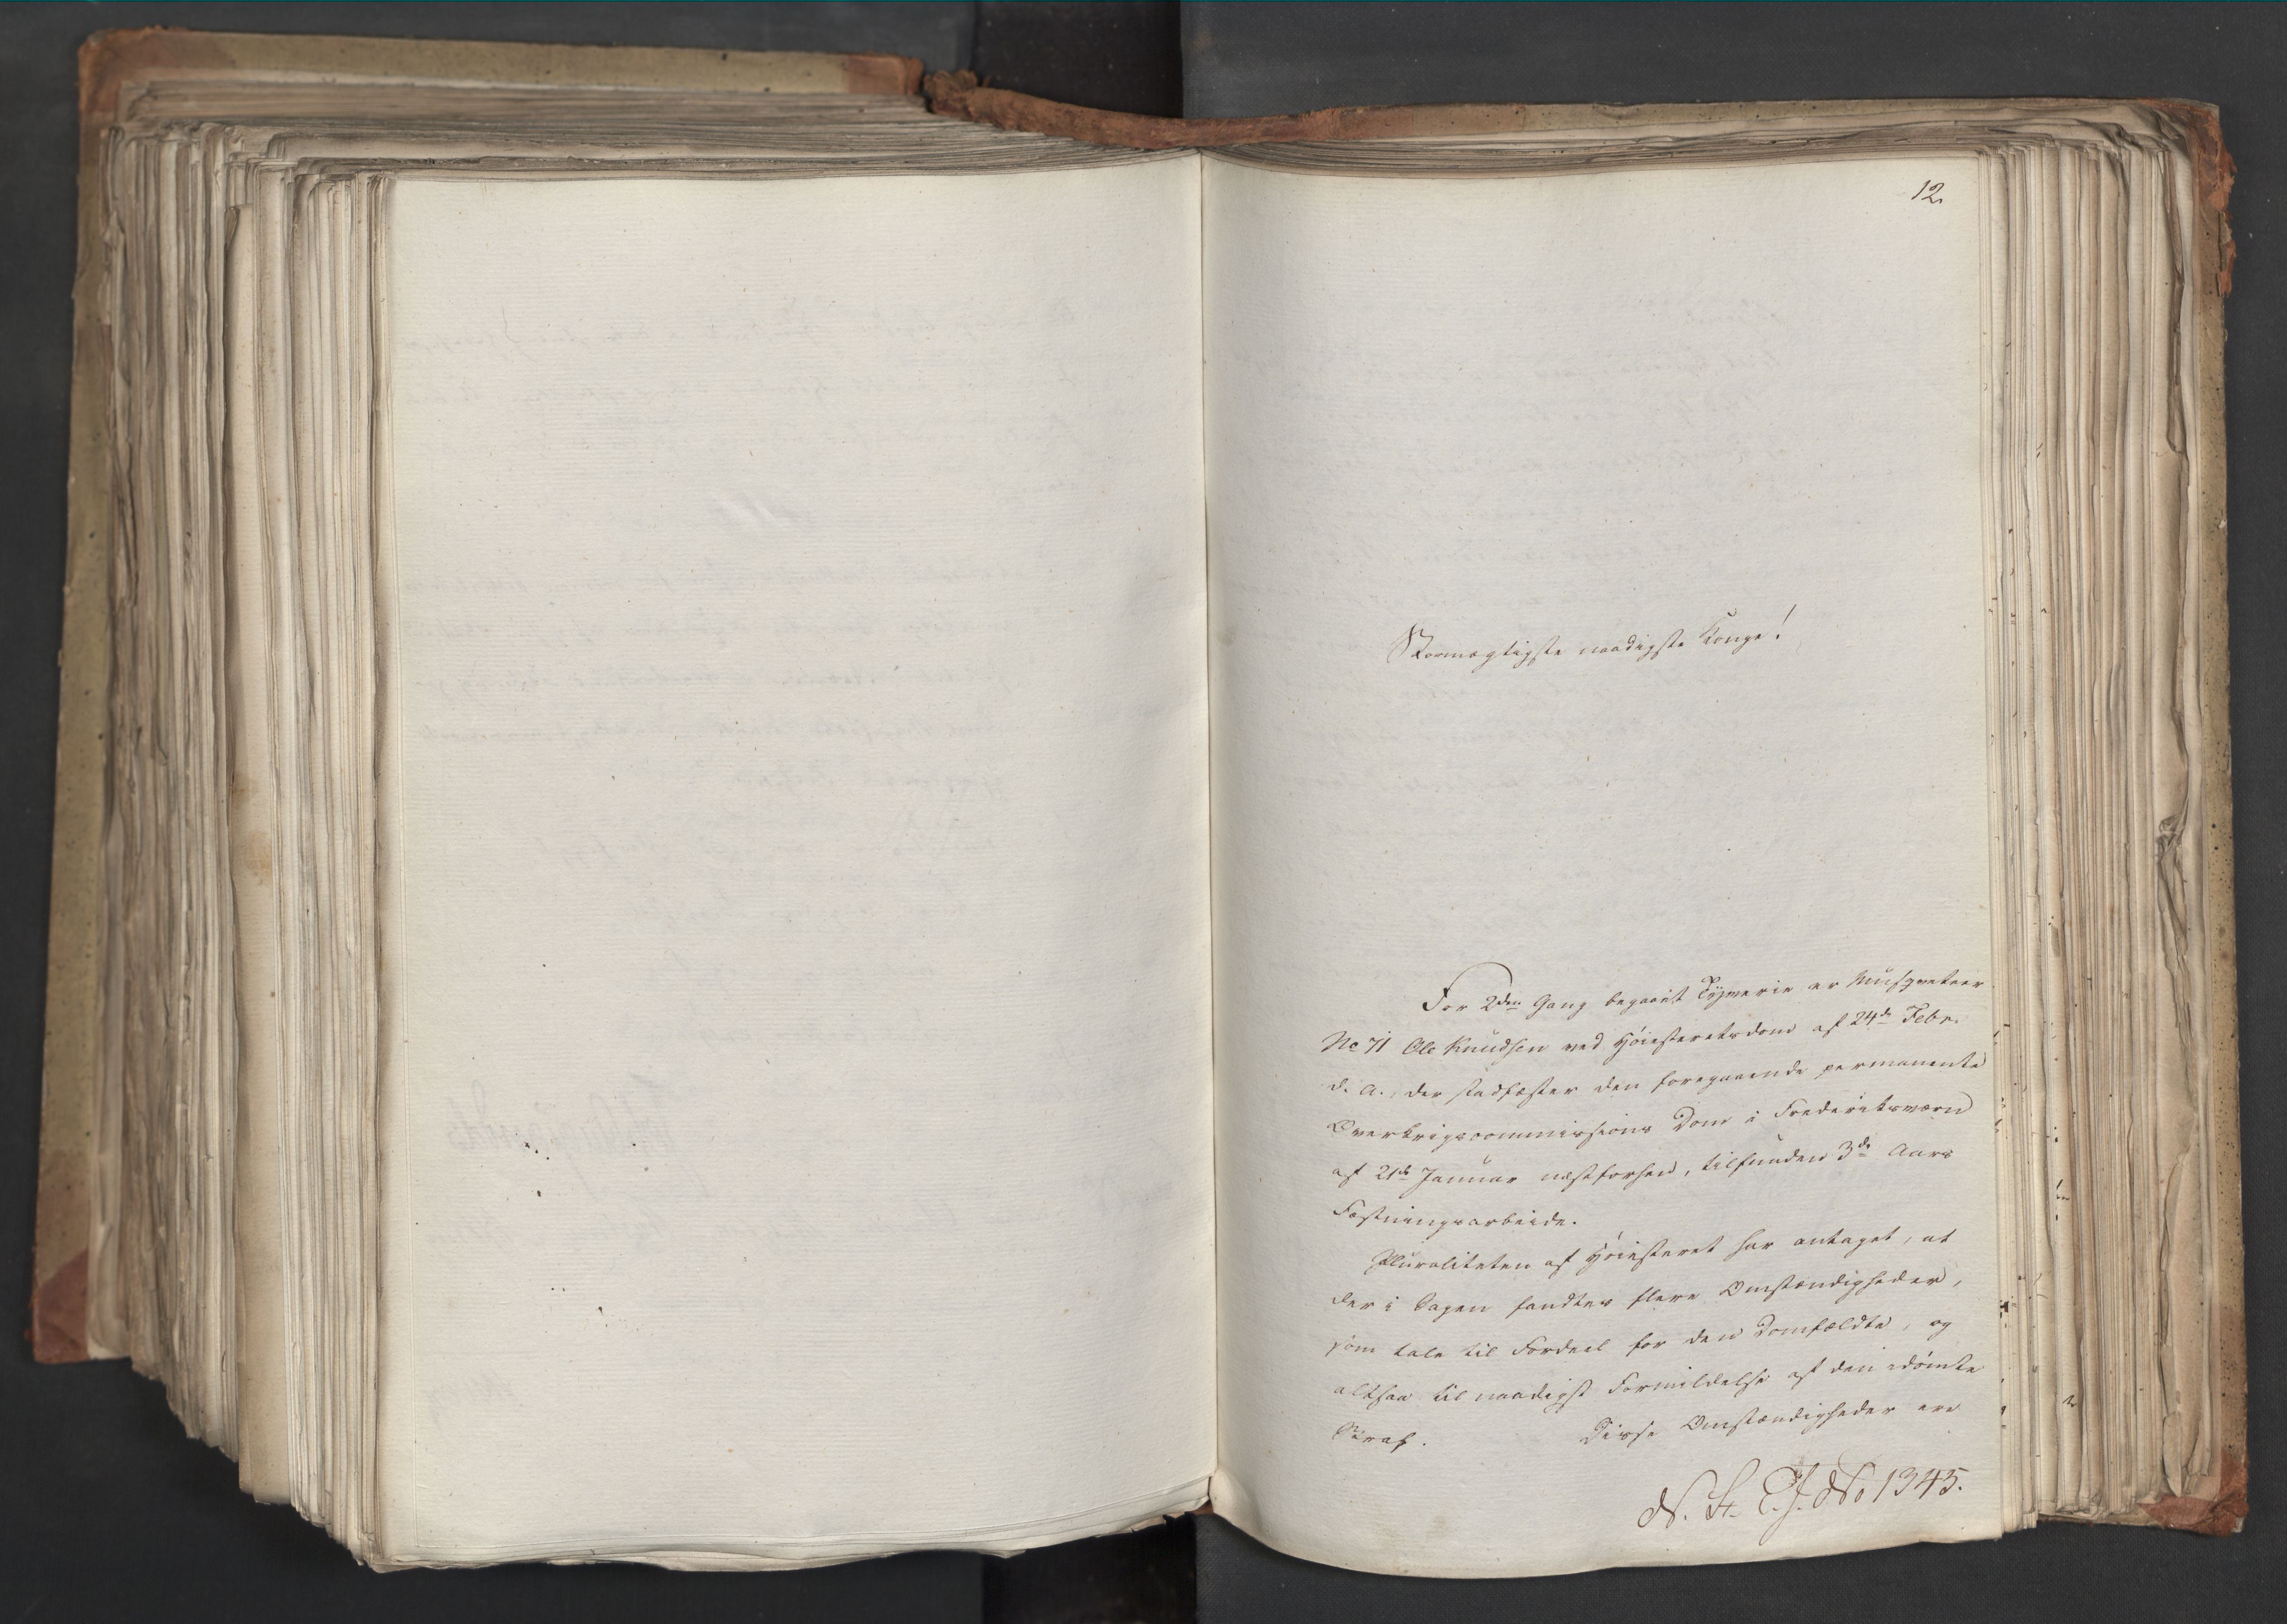 12.
Stormægtigste naadigste Konge!
For 2den Gang begaaet Tyverie er Musqueteer
No 71 Ole Knudsen ved Høiesteretsdom af 24de Febr.
d. A., der stadfæster den foregaaende permanente
Overkrigscommissions Dom i Frederiksværn
af 21de Januar næstforhen, tilfunden 3de Aars
Fæstningsarbeide.
Pluraliteten af Høiesteret har antaget, at
der i Sagen fandtes flere Omstændigheder,
som tale til Fordeel for den Domfældte, og
altsaa til naadigst Formildelse af den idømte
Straf. Disse Omstændigheder ere
N. St. E. J. No 1345.